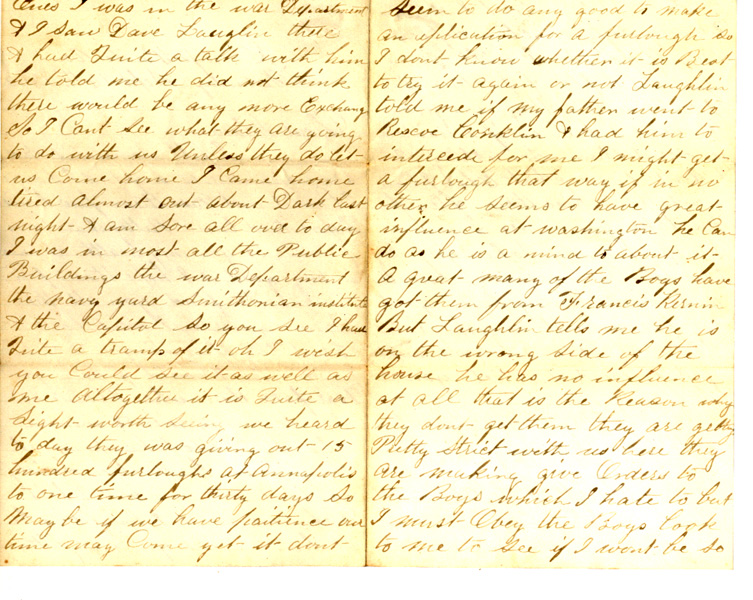 ones I was in the war Department
& I saw Dave Lauglin there
& had Quite a talk with him
he told me he did not think
there would be any more Exchang
So I Cant See what they are going
to do with us Unless they do let
us Come home I Came home
tired almost out about Dark last
night & am Sore all over to day
I was in most all the Public
Buildings the war Department
the navy yard Smithonian institute
& the Capitol So you See I have
Quite a tramp of it oh I wish
you Could See it as well as
me altogether it is Quite a
Sight worth Seing we heard
to day they was giving out 15
hundred furloughs at Annapolis
to one time for thirty days So
may be if we have paitience our
time may Come yet it dont
Seem to do any good to make
an aplication for a furlough So
I dont Know whether it is Best
to try it again or not Laughlin
told me if my father went to
Roscoe Conklin & had him to
intercede for me I might get
a furlough that way if in no
other he Seems to have great
influence at washington he Can
do as he is a mind to about it
A great many of the Boys have
got them from Francis Kernin
But Laughlin tells me he is
on the wrong Side of the
house he has no influence
at all that is the Reason why
they dont get them they are getting
Pretty Strict with us here they
are making give Orders to
the Boys which I hate to but
I must Obey the Boys look
to me to See if I wont be So